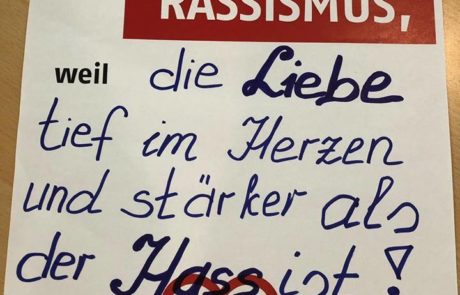 RASSISMUS,
weil die Liebe
tief im Herzen
und stärker als
der Hass ist!